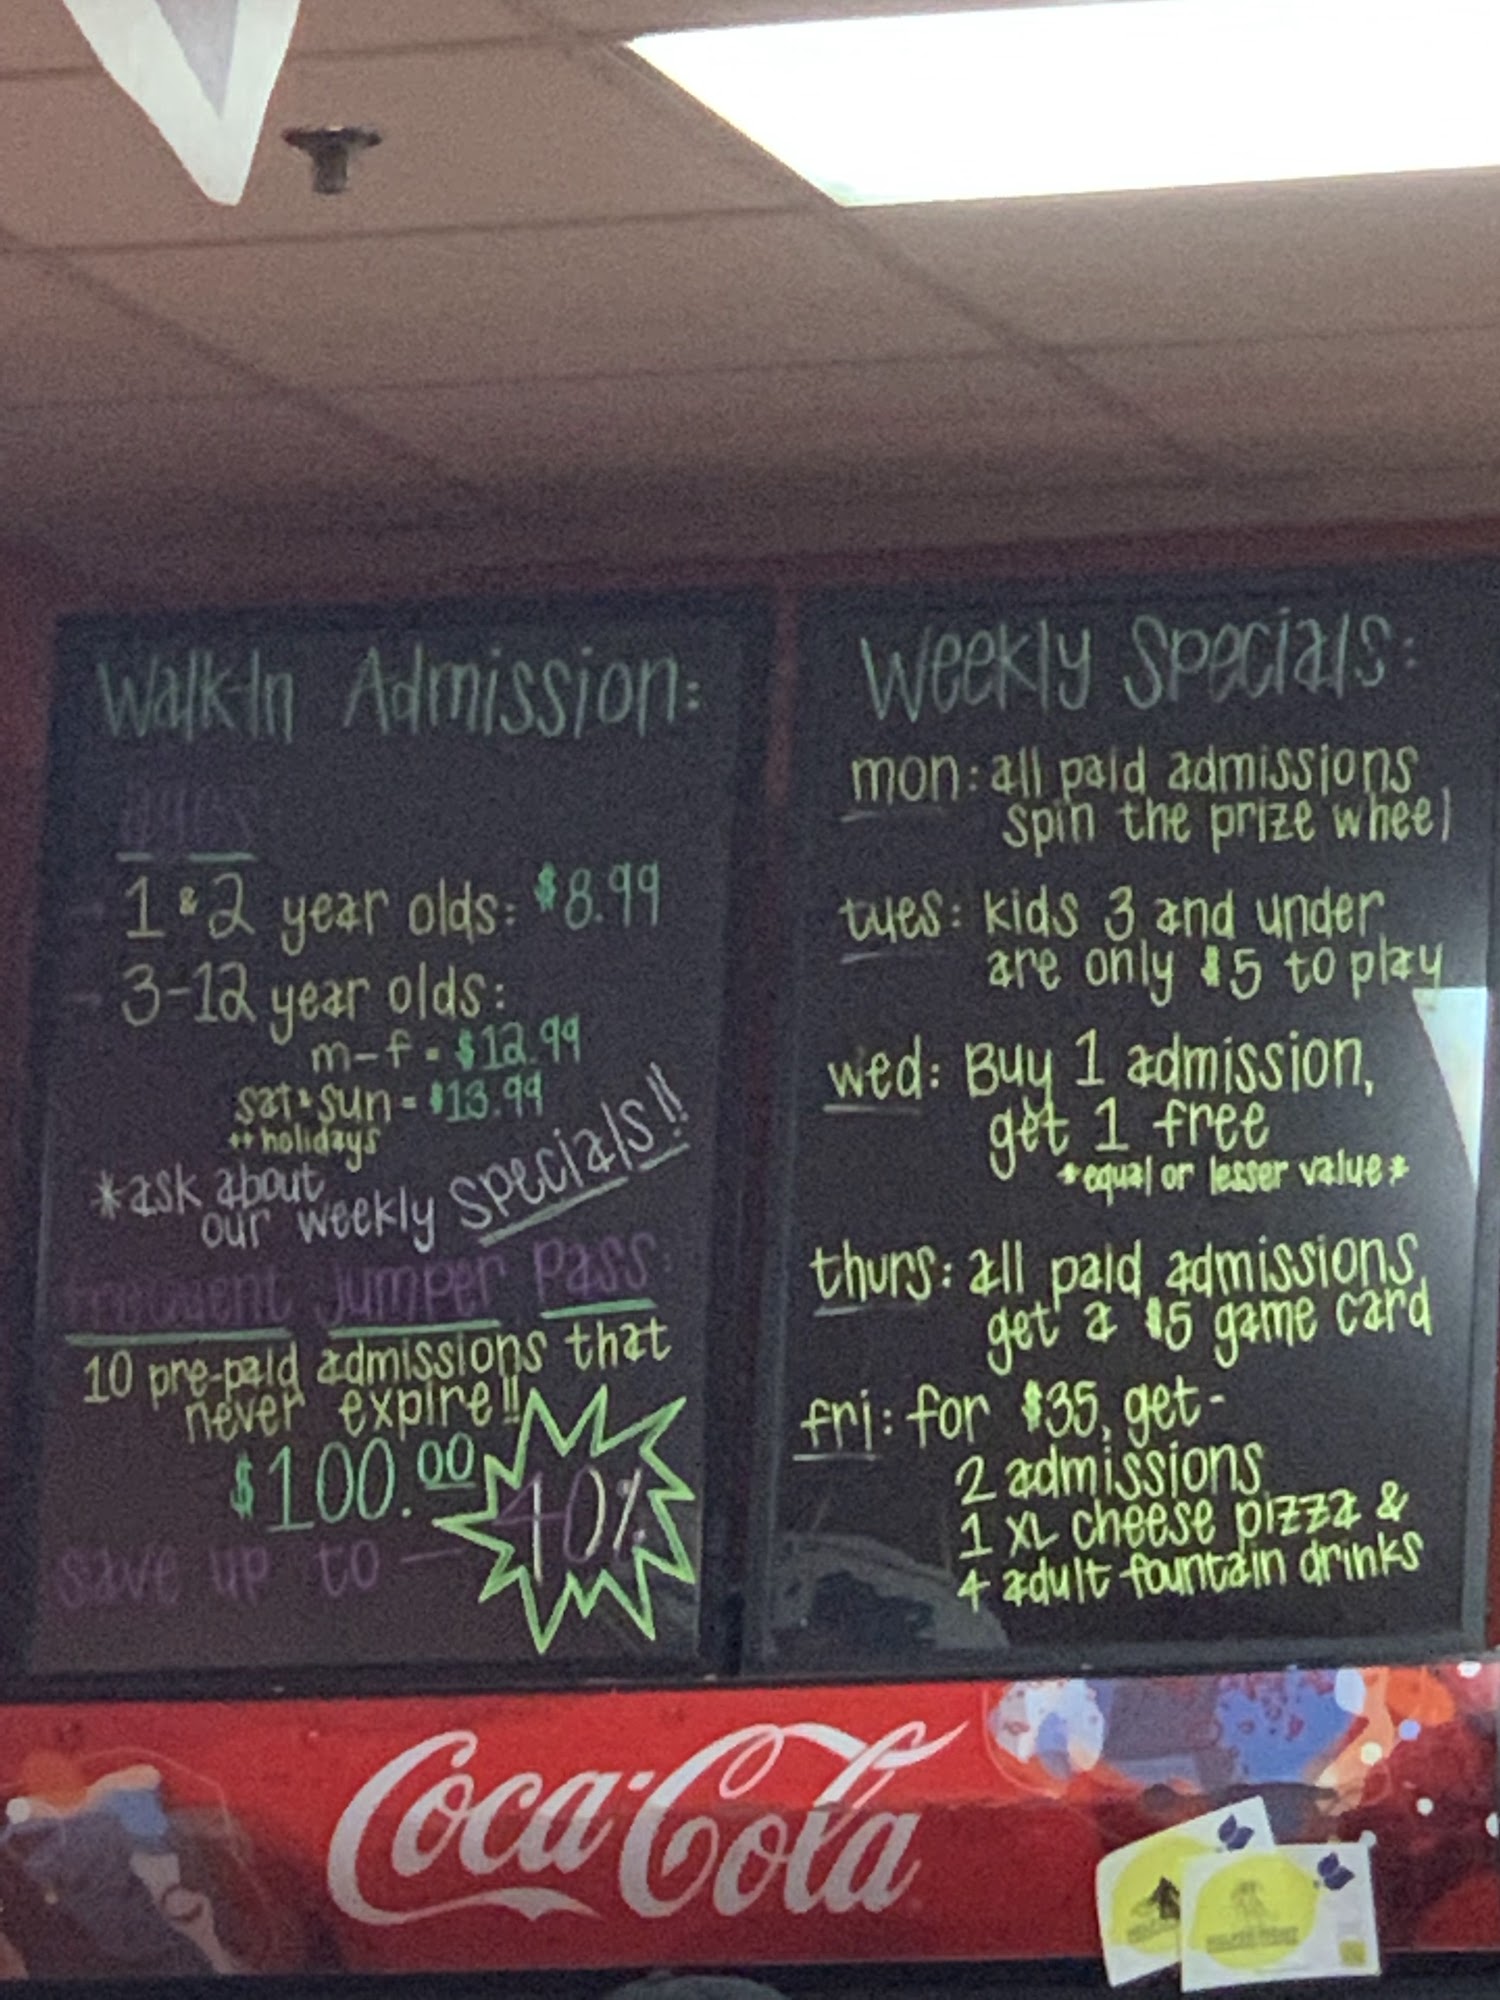 Walk-In Admission:
ages
1 & 2 year olds: $8.99
3-12 year olds:
m-f = $12.99
sat & sun = $13.99
++holidays
*ask about
our weekly specials!!
frequent jumper pass:
10 pre-paid admissions that
never expire!!
$100.00
save up to — 40%
Weekly Specials:
mon: all paid admissions
spin the prize wheel
tues: kids 3 and under
are only $5 to play
wed: Buy 1 admission,
get 1 free
*equal or lesser value*
thurs: all paid admissions
get a $5 game card
fri: for $35, get-
2 admissions
1 XL cheese pizza &
4 adult fountain drinks
Coca-Cola